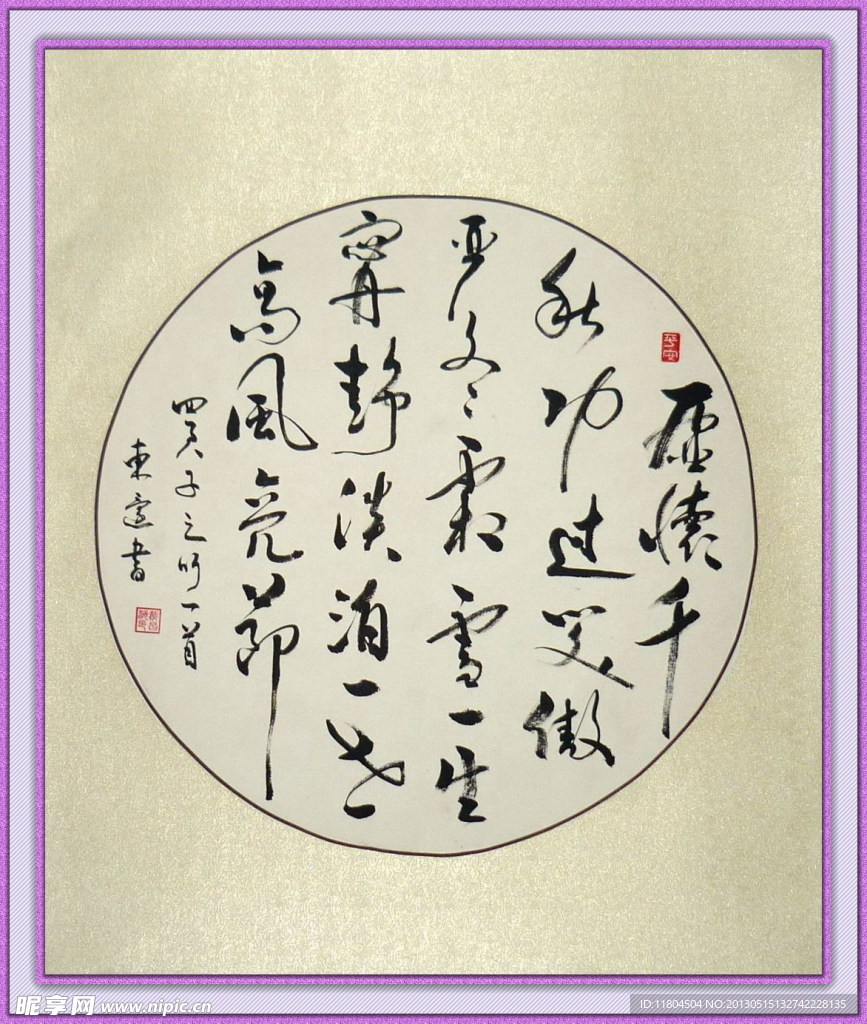 虚懷千
秋功过笑傲
严冬霜雪一生
寧静淡泊一世
高風亮节
四君子之竹一首
東書
昵享网 www.nipic.cn
ID:11804504 NO:20130515132742228135